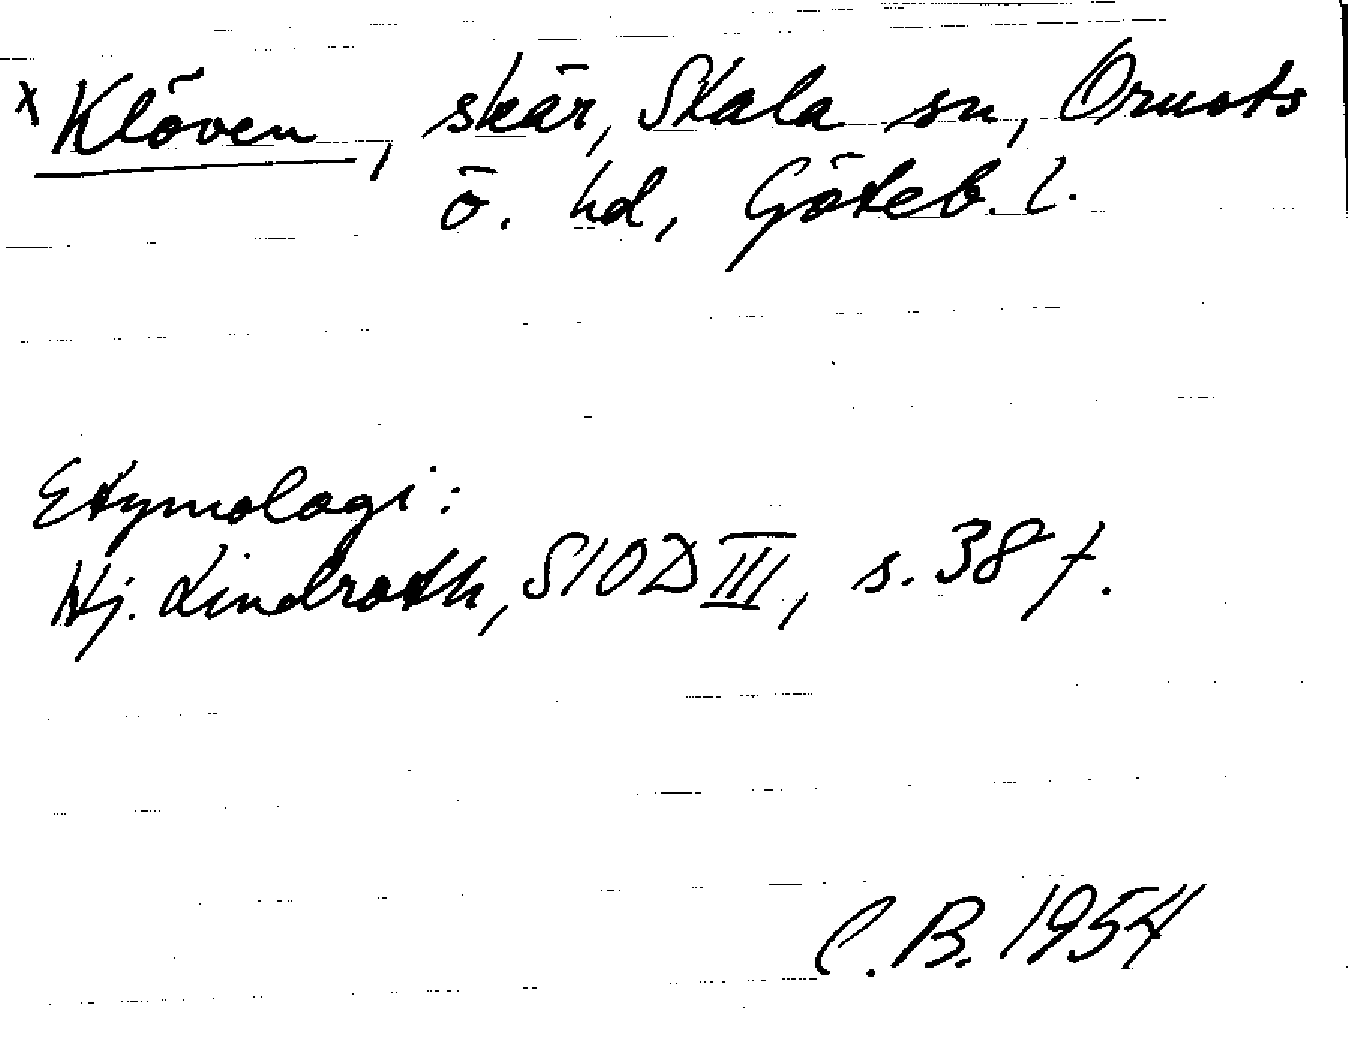 x Klöven, skär, Skala sn, Orusts
ö. hd, Göteb. l.
Etymologi:
Hj. Lindroth, SIOD III, s. 38 f.
C. B. 1954